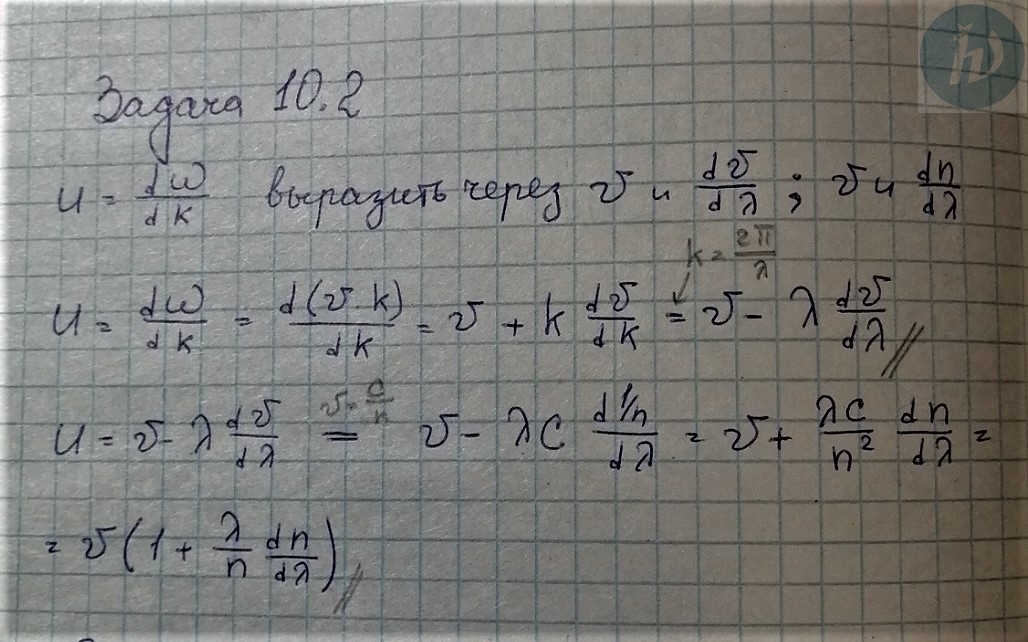 Задача 10.2
u = dω/dk выразить через v и dv/dλ ; v и dn/dλ
k = 2π/λ
u = dω/dk = d(v k)/dk = v + k dv/dk = v - λ dv/dλ //
v = c/n
u = v - λ dv/dλ = v - λc d1/n/dλ = v + λc/n² dn/dλ =
= v(1 + λ/n dn/dλ) //